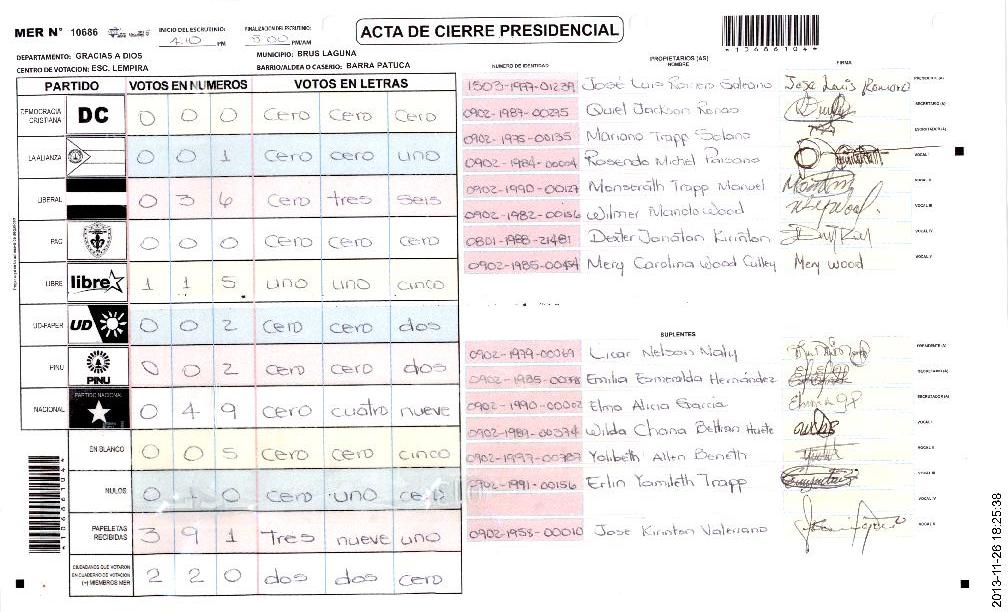 MER N° 10686
INICIO DEL ESCRUTINIO: 4:10 PM
FINALIZACION DEL ESCRUTINIO: 8:00 PM/AM
ACTA DE CIERRE PRESIDENCIAL
*10686104*
DEPARTAMENTO: GRACIAS A DIOS
MUNICIPIO: BRUS LAGUNA
CENTRO DE VOTACION: ESC. LEMPIRA
BARRIO/ALDEA O CASERIO: BARRA PATUCA
PARTIDO VOTOS EN NUMEROS VOTOS EN LETRAS
DEMOCRACIA CRISTIANA DC 0 0 0 cero cero cero
LA ALIANZA 0 0 1 cero cero uno
LIBERAL 0 3 6 cero tres seis
PAC 0 0 0 cero cero cero
LIBRE libre 1 1 5 uno uno cinco
UD-FAPER UD 0 0 2 cero cero dos
PINU PINU 0 0 2 cero cero dos
NACIONAL PARTIDO NACIONAL 0 4 9 cero cuatro nueve
EN BLANCO 0 0 5 cero cero cinco
NULOS 0 1 0 cero uno cero
PAPELETAS RECIBIDAS 3 9 1 Tres nueve uno
CIUDADANOS QUE VOTARON EN CUADERNO DE VOTACION (+) MIEMBROS MER 2 2 0 dos dos cero
*10686104*
NUMERO DE IDENTIDAD
PROPIETARIOS (AS)
NOMBRE
FIRMA
1503-1977-01239 José Luis Romero Jose Luis Romero PRESIDENTE (A)
0902-1987-00275 Quiel Jackson SECRETARIO (A)
0902-1975-00135 Mariano Trapp Solano ESCRUTADOR (A)
0902-1984-00004 Rosendo Michel VOCAL I
0902-1990-00127 Monserath Trapp Manuel VOCAL II
0902-1982-00156 Wilmer Manolo Wood VOCAL III
0801-1988-21481 Dexter Jonatan Kirinton VOCAL IV
0902-1985-00454 Mery Carolina Wood Culley Mery Wood VOCAL V
SUPLENTES
0902-1979-00069 Licar Nelson Naly PRESIDENTE (A)
0902-1985-00098 Emilia Esmeralda Hernández SECRETARIO (A)
0902-1990-00002 Elmo Alicia García ESCRUTADOR (A)
0902-1989-00374 Wilda Chona Beltran Huete VOCAL I
0902-1997-00387 Yolibeth Allen Beneth VOCAL II
0902-1991-00156 Erlin Yamileth Trapp VOCAL III
VOCAL IV
0902-1958-00010 Jose Kirinton Valeriano VOCAL V
2013-11-26 18:25:38